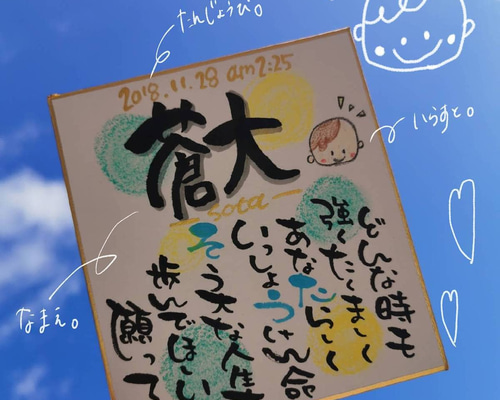 たんじょうび。
2018.11.28 am2:25
蒼大
sota
いらすと。
なまえ。
どんな時も
強くたくましく
あなたらしく
いっしょうけん命
そう大な人生
歩んでほしい
願って